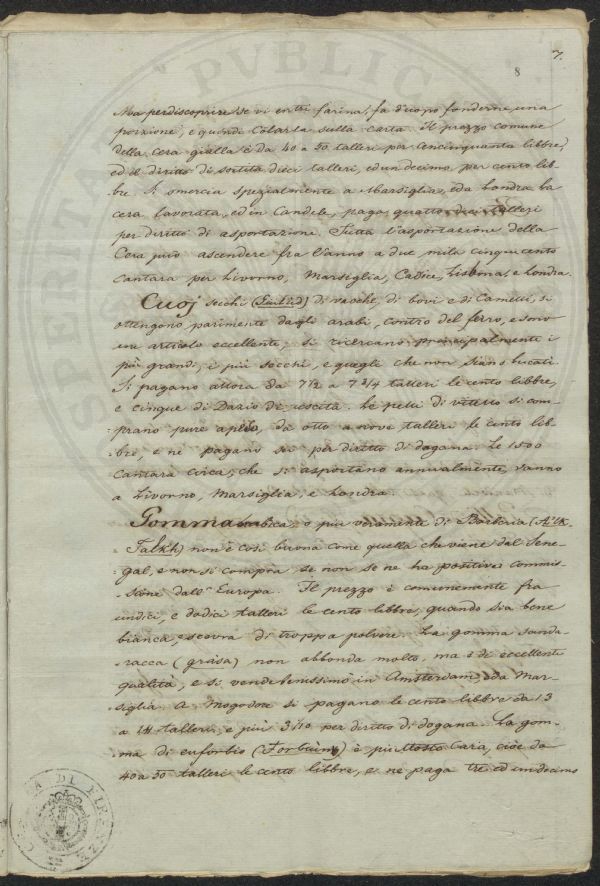 7.
8
Ma per discoprire se vi entri farina, fa d'uopo fonderne una
porzione, e quindi colarla sulla carta. Il prezzo comune
della cera gialla è da 40 a 50 talleri per centocinquanta libbre,
ed il diritto di sortita dieci talleri, ed un decimo per cento lib-
bre. Si smercia spezialmente a Marsiglia, ed a Londra. La
cera lavorata, ed in Candele, paga quattordici talleri
per diritto di asportazione. Tutta l'asportazione della
Cera può ascendere fra l'anno a due mila cinquecento
cantara per Livorno, Marsiglia, Cadice, Lisbona, e Londra.
Cuoj secchi di vacche, di bovi e di Camelli, si
ottengono parimente dagli arabi, contro del ferro, e sono
un articolo eccellente, si ricercano principalmente i
più grandi, i più secchi, e quegli che non siano bucati.
Si pagano allora da 7 1/2 a 7 3/4 talleri le cento libbre,
e cinque di Dazio di uscita. Le pelli di vitello si com-
prano pure a peso, da otto a nove talleri le cento lib-
bre, e ne pagano sei per diritto di dogana. Le 1500
Cantara circa, che si asportano annualmente, vanno
a Livorno, Marsiglia, e Londra.
Gomma arabica, o più veramente di Barberia
(Talkh) non è così buona come quella che viene dal Sene-
gal, e non si compra se non se ne ha positiva commis-
sione dall'Europa. Il prezzo è comunemente fra
undici, e dodici talleri le cento libbre, quando sia bene
bianca, e scevra di troppa polvere. La gomma sanda-
racca (grasa) non abbonda molto, ma è di eccellente
qualità, e si vende benissimo in Amsterdam, ed a Mar-
siglia. A Mogodor si pagano le cento libbre da 13
a 14 talleri, e più 3 1/10 per diritto di dogana. La gom-
ma di euforbio (Forbiun) è piuttosto Cara, cioè da
40 a 50 talleri le cento libbre, e ne paga tre ed un decimo
PUBLICA
DI FIRENZE